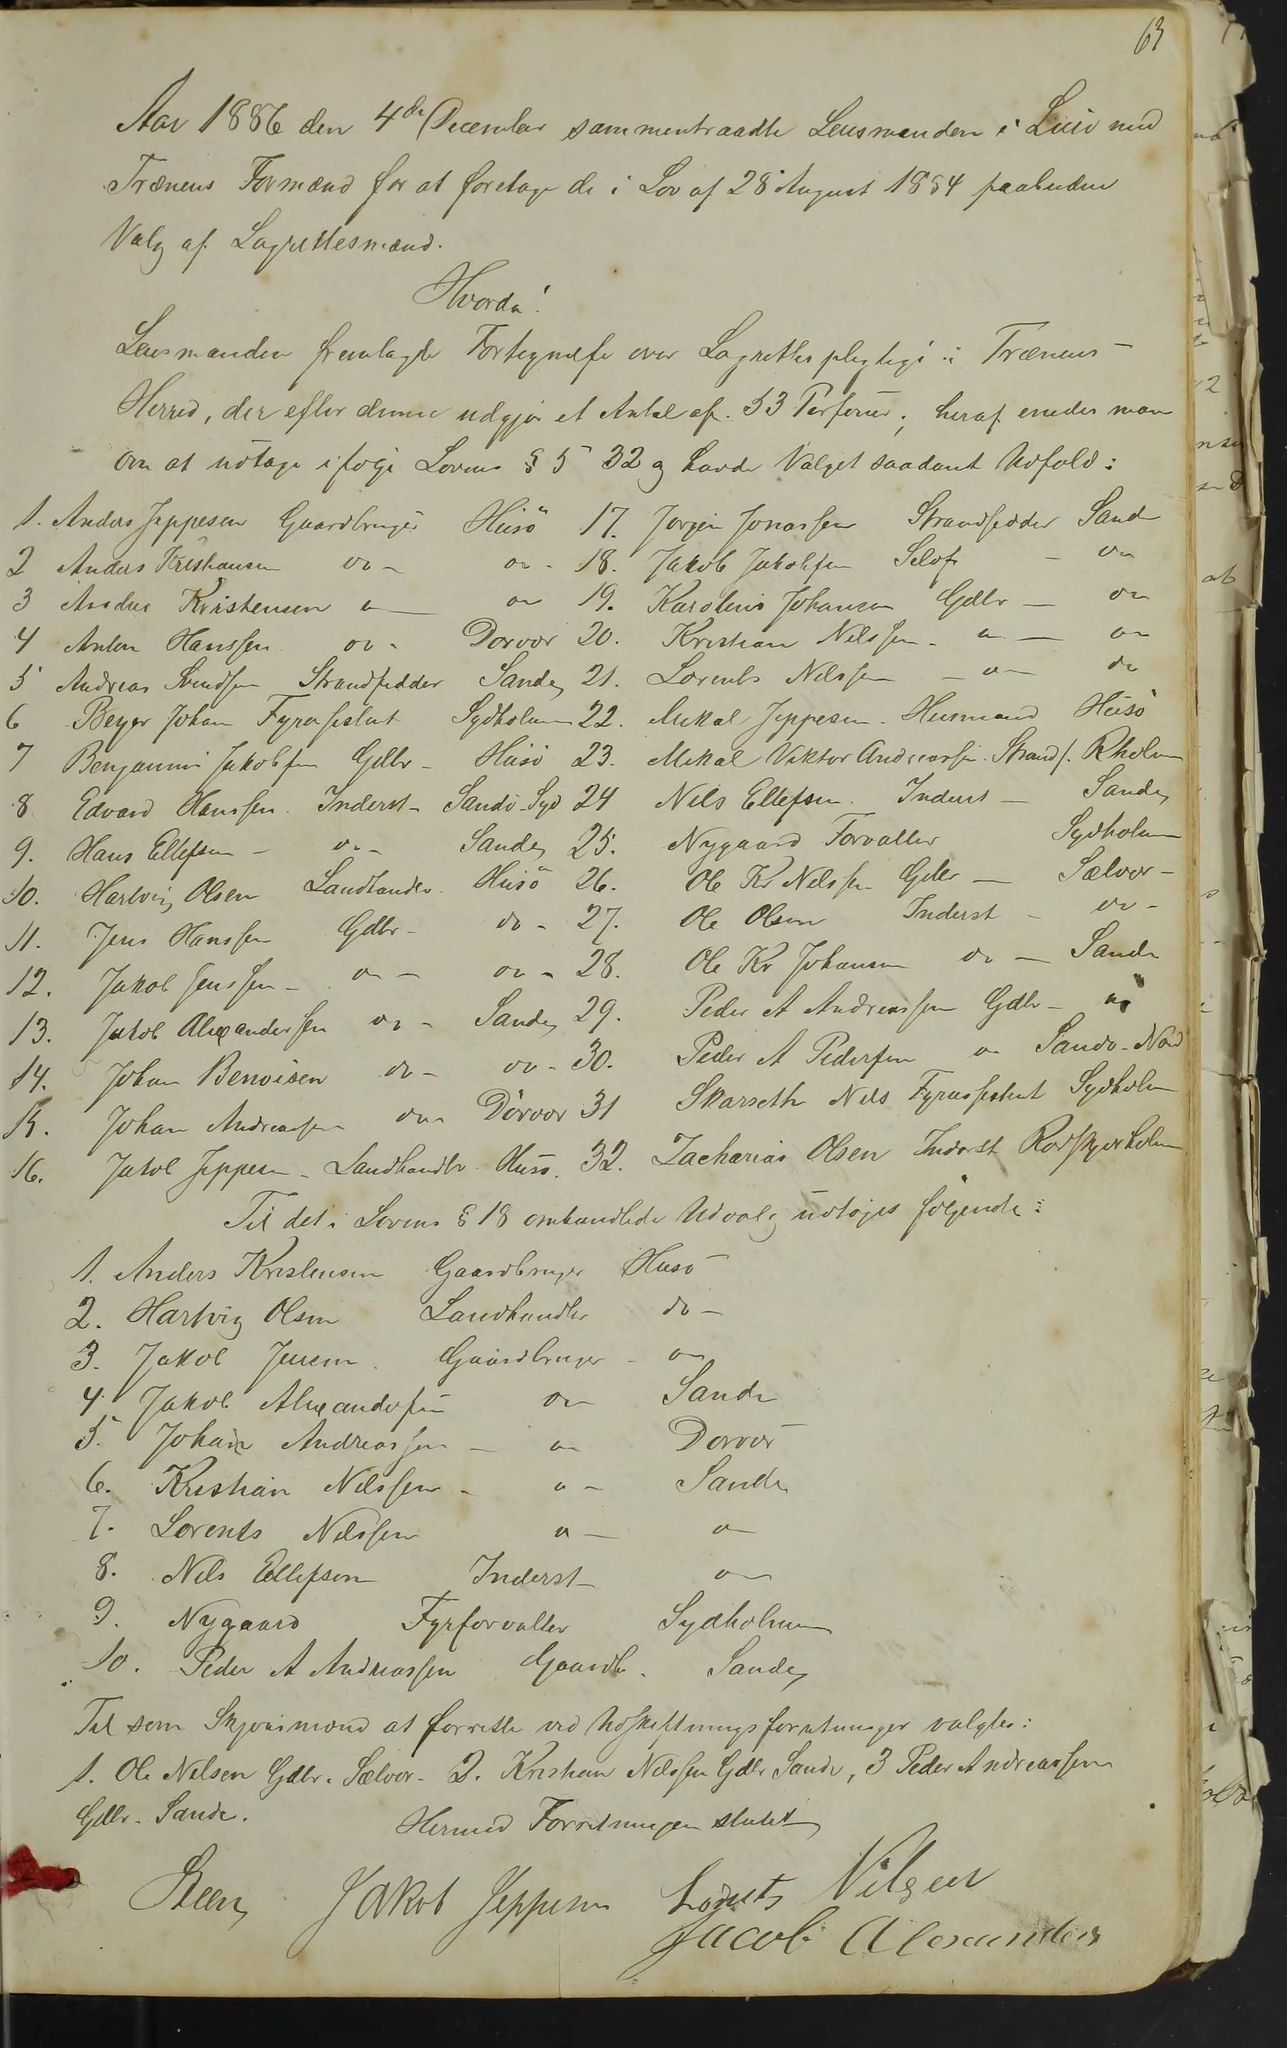 63
Aar 1886 den 4de December sammentraadte Lensmanden i Lurö med
Trænens Formænd for at foretage de i Lov af 28 August 1854 paabudne
Valg af Lagrettesmænd.
Hvorda!
Lensmanden fremlagde Fortegnelse over Lagrettespligtige i Trænens
Herred, der efter denne udgjör et Antal af 53 Personer; heraf enedes man
om at udtage ifölge Lovens § 5 32 og havde Valget saadant Udfald:
1. Anders Jeppesen Gaardbruger Husö 17. Jörgen Jonassen Strandsidder Sand
2 Anders Kristiansen do - do - 18. Jakob Jakobsen Selvf - do
3 Andreas Kristensen do - do 19. Karolius Johansen Gdbr - do
4 Anton Hanssen do - Dorvær 20. Kristian Nilssen - do - do
5 Andreas Svendsen Strandsidder Sande 21. Lorents Nilssen - do - do
6 Beyer Johan Fyrassistent Sydholmen 22. Mikal Jeppesen - Husmand Husö
7 Benjamin Jakobsen Gdbr - Husö 23. Mikal Viktor Andreassen Strands. Rholmen
8 Edvard Hanssen Inderst - Sandö-Syd 24 Nils Ellefsen Inderst - Sande
9. Hans Ellefsen - do - Sande 25. Nygaard Forvalter Sydholmen
10. Hartvig Olsen Landhandler Husö 26. Ole Kr Nilssen Gdbr - Sælvær -
11. Jens Hanssen Gdbr - do - 27. Ole Olsen Inderst - do -
12. Jakob Jenssen - do - do - 28. Ole Kr Johansen do - Sande
13. Jakob Alexandersen do - Sande 29. Peder A Andreassen Gdbr - do
14. Johan Benoisen do - do - 30. Peder A Pedersen do Sandö-Nord
15. Johan Andreassen do Dörvær 31 Skarseth Nils Fyrassistent Sydholmen
16. Jakob Jeppesen - Landhandler Husö. 32. Zacharias Olsen Inderst Rödskjærholmen
Til det i Lovens § 18 omhandlede Udvalg udtoges fölgende:
1. Anders Kristensen Gaardbruger Husö
2. Hartvig Olsen Landhandler do -
3. Jakob Jensen Gaardbruger - do
4. Jakob Alexandersen do Sande
5. Johan Andreassen - do Dorvær
6. Kristian Nilssen - do - Sande
7. Lorents Nilssen do - do
8. Nils Ellefsen Inderst do
9. Nygaard Fyrforvalter Sydholmen
10. Peder A Andreassen Gaardb. Sande
Til som Skjönsmænd at forrette ved Udskiftningsforretninger valgtes:
1. Ole Nilsen Gdbr. Sælvær - 2. Kristian Nilssen Gdbr Sande, 3 Peder Andreassen
Gdbr - Sande.
Hermed Forretningen sluttet
Steen Jakob Jeppesen Lornts Nilsen
Jacob Alexanders